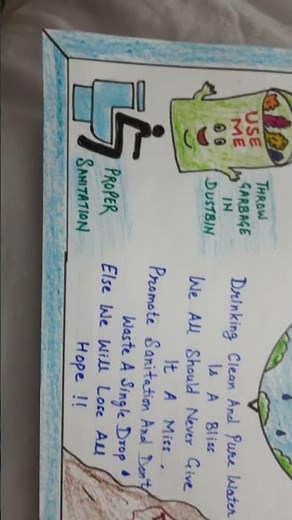 USE
ME
THROW
GARBAGE
IN
DUSTBIN
PROPER
SANITATION
Drinking Clean And Pure Water
Is A Bliss
We All Should Never Give
It A Miss.
Promote Sanitation And Don't
Waste A Single Drop
Else We Will Lose All
Hope !!